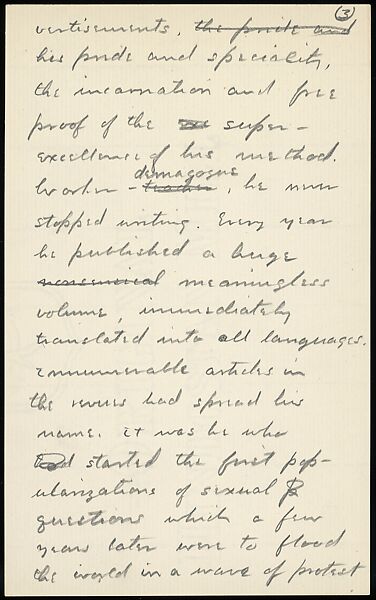 (3)
vertisements, the pride and
his pride and speciality,
the incarnation and free
proof of the super-
excellence of his method.
demagogue
Worker - teacher, he never
stopped writing. Every year
he published a huge
nonsensical meaningless
volume, immediately
translated into all languages.
Innumerable articles in
the revues had spread his
name. It was he who
started the first pop-
ularizations of sexual
questions which a few
years later were to flood
the world in a wave of protest